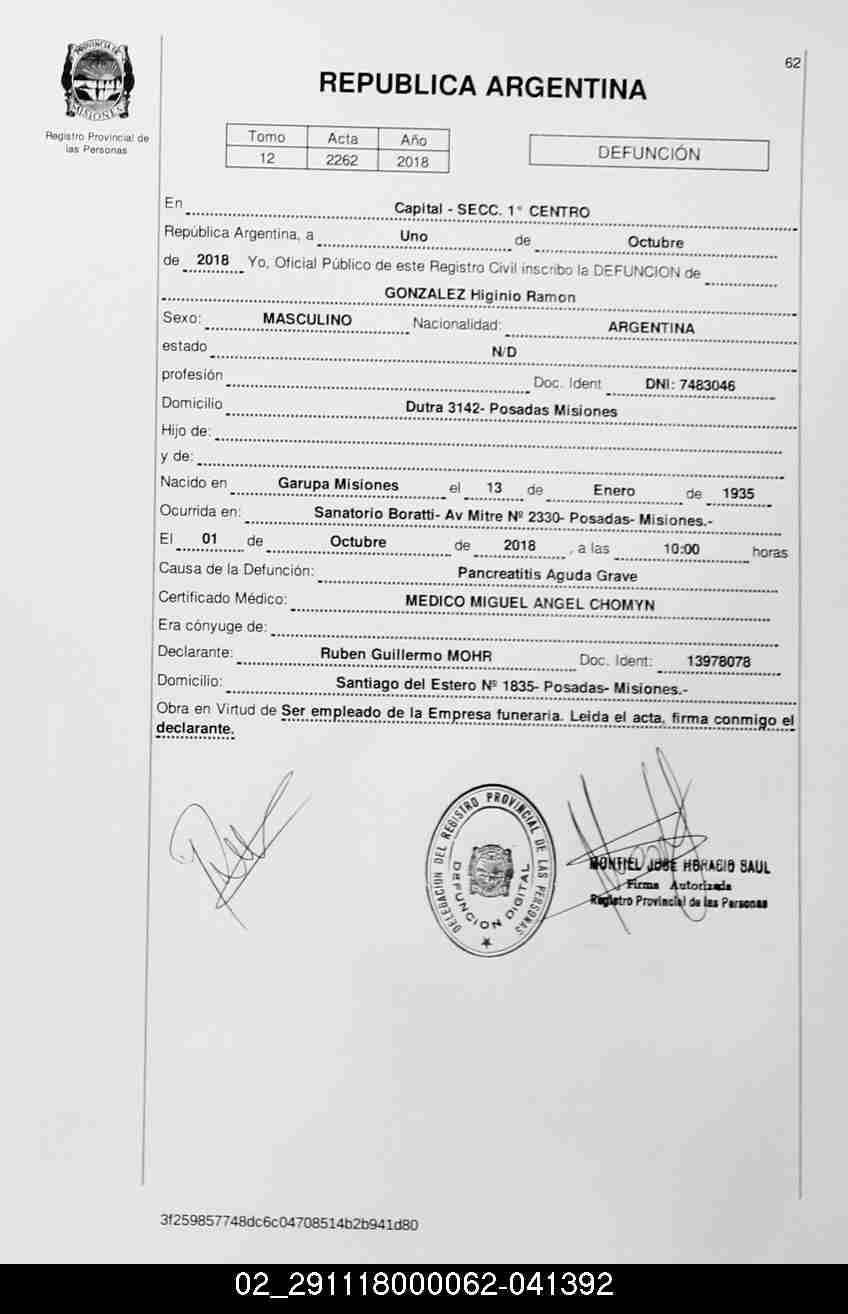 62
PROVINCIA DE
MISIONES
Registro Provincial de
las Personas
REPUBLICA ARGENTINA
Tomo Acta Año
12 2262 2018
DEFUNCIÓN
En Capital - SECC. 1° CENTRO
República Argentina, a Uno de Octubre
de 2018 Yo, Oficial Público de este Registro Civil inscribo la DEFUNCION de
GONZALEZ Higinio Ramon
Sexo: MASCULINO Nacionalidad: ARGENTINA
estado N/D
profesión Doc. Ident DNI: 7483046
Domicilio Dutra 3142- Posadas Misiones
Hijo de:
y de:
Nacido en Garupa Misiones el 13 de Enero de 1935
Ocurrida en: Sanatorio Boratti- Av Mitre Nº 2330- Posadas- Misiones.-
El 01 de Octubre de 2018 , a las 10:00 horas
Causa de la Defunción: Pancreatitis Aguda Grave
Certificado Médico: MEDICO MIGUEL ANGEL CHOMYN
Era cónyuge de:
Declarante: Ruben Guillermo MOHR Doc. Ident: 13978078
Domicilio: Santiago del Estero Nº 1835- Posadas- Misiones.-
Obra en Virtud de Ser empleado de la Empresa funeraria. Leida el acta, firma conmigo el
declarante.
DELEGACION DEL REGISTRO PROVINCIAL DE LAS PERSONAS
DEFUNCION DIGITAL
MONTIEL JOSE HORACIO SAUL
Firma Autorizada
Registro Provincial de las Personas
3f259857748dc6c04708514b2b941d80
02_291118000062-041392